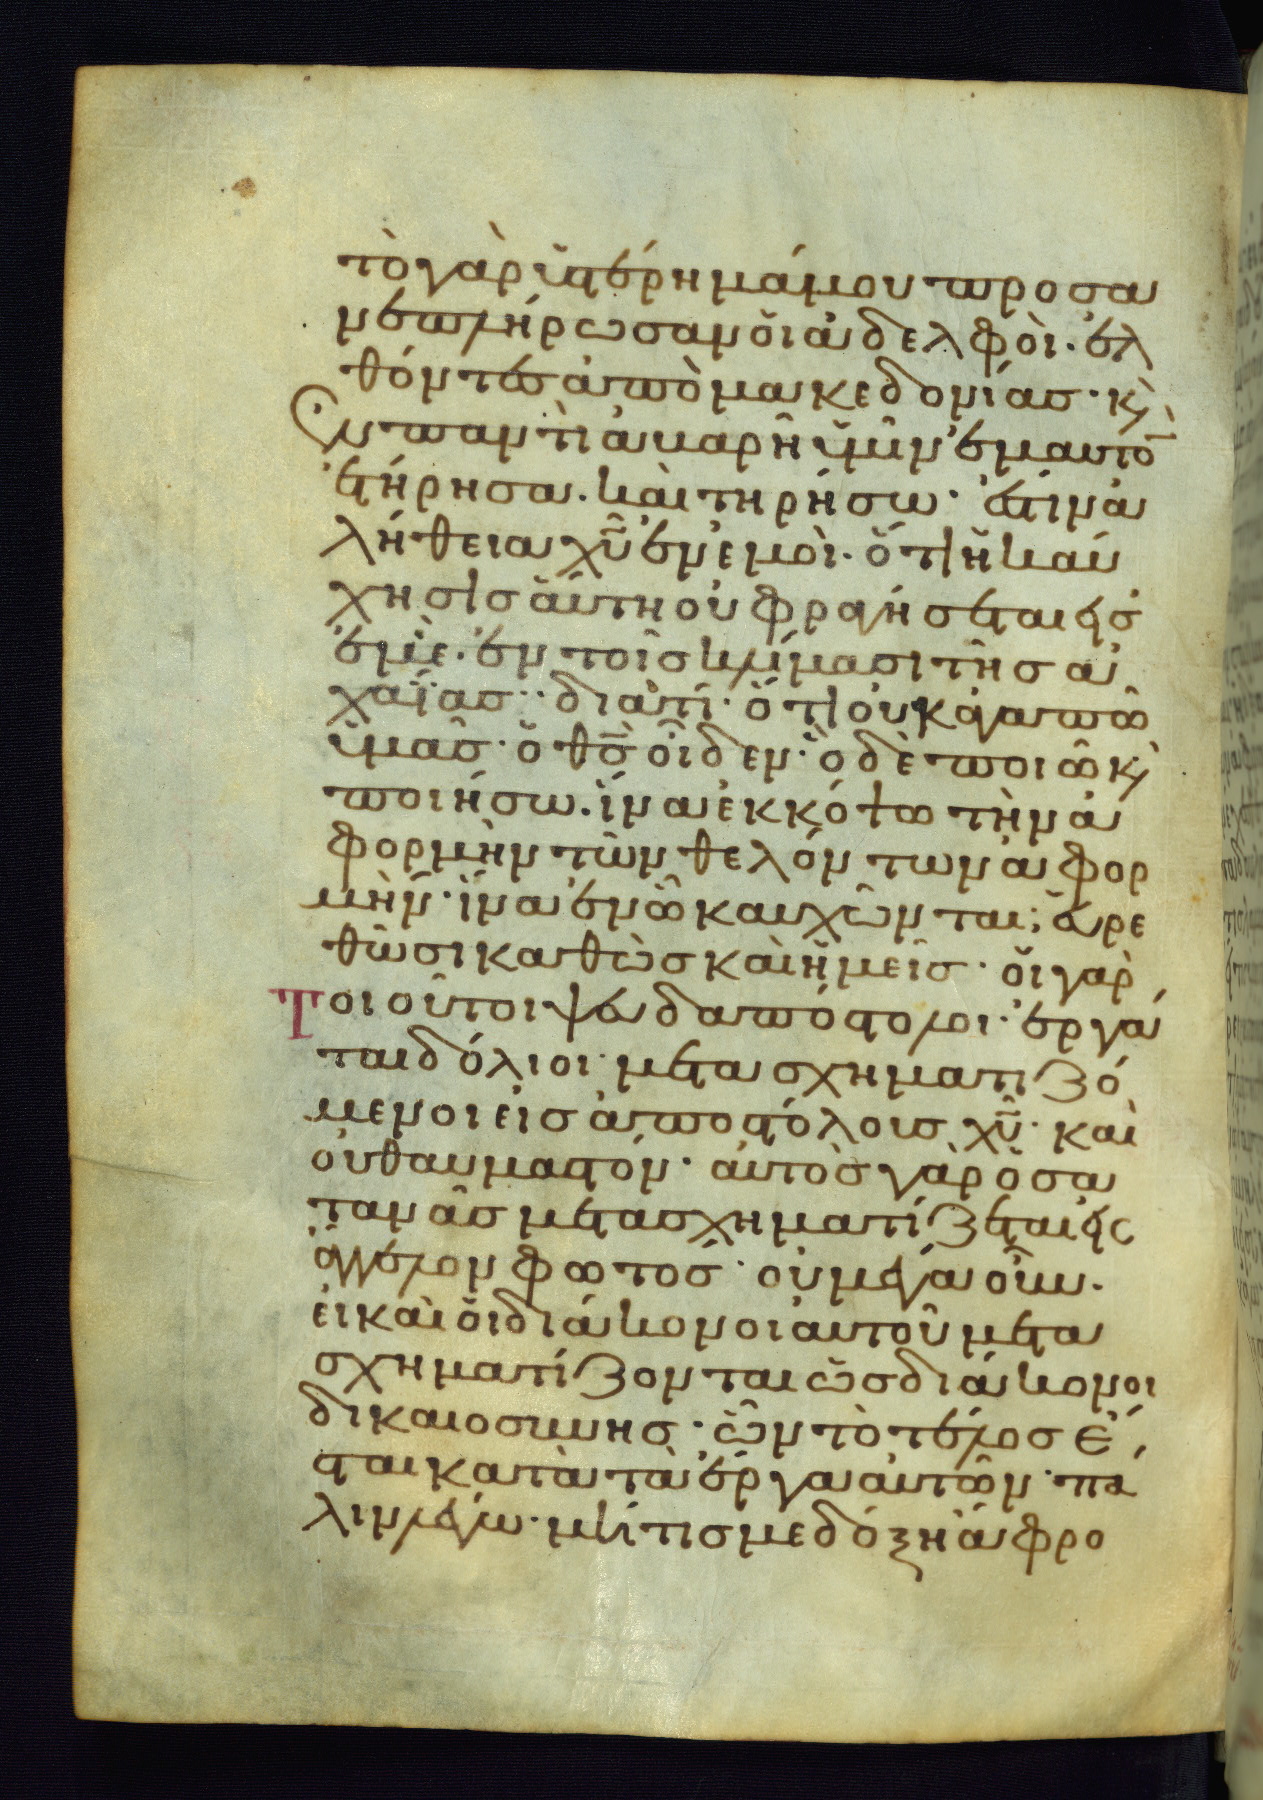 τὸ γὰρ ὑστέρημά μου προσα
νεπλήρωσαν ὁι ἀδελφὸι· ἐλ
θόντες ἀπὸ μακεδονίας· κ(αὶ)
ἐν παντὶ ἀβαρῆ ὑμῖν ἐμαυτὸ(ν)
ἐτήρησα. καὶ τηρήσω· ἔστιν ἀ
λήθεια χ̅υ̅ ἐν ἐμοὶ· ὅτι ἡ καύ
χησις ἅυτη ου φραγήσεται εἰς
ἐμὲ· ἐν τοῖς κλίμασι τῆς ἀ
χαΐας· διατί· ὅτι οὐκ ἀγαπῶ
ὑμᾶς· ὁ θ̅ς̅ οἶδεν· ὃ δὲ ποιῶ κ(αὶ)
ποιήσω. ἵνα ἐκκόψω τὴν ἀ
φορμὴν τῶν θελόντων ἀφορ
μὴν· ἵνα ἐν ᾧ καυχῶνται; ἑυρε
θῶσι καθὼς καὶ ἡμεῖς· ὁι γαρ
τοιοῦτοι ψευδαπόστολοι· ἐργά
ται δόλιοι· μετασχηματιζό
μενοι εἰς ἀποστόλους χ̅υ̅· καὶ
οὐ θαυμαστόν· ἀυτὸς γὰρ ὁ σα
τανᾶς μετασχηματίζεται εἰς
ἄγγελον φωτός· οὐ μέγα οὖν.
εἰ καὶ ὁι διάκονοι αυτοῦ μετα
σχηματίζονται ὡς διάκονοι
δικαιοσύνης· ὧν τὸ τέλος ἔσ
ται κατὰ τὰ ἔργα ἀυτῶν· πά
λιν λέγω· μή τις με δόξη ἄφρο